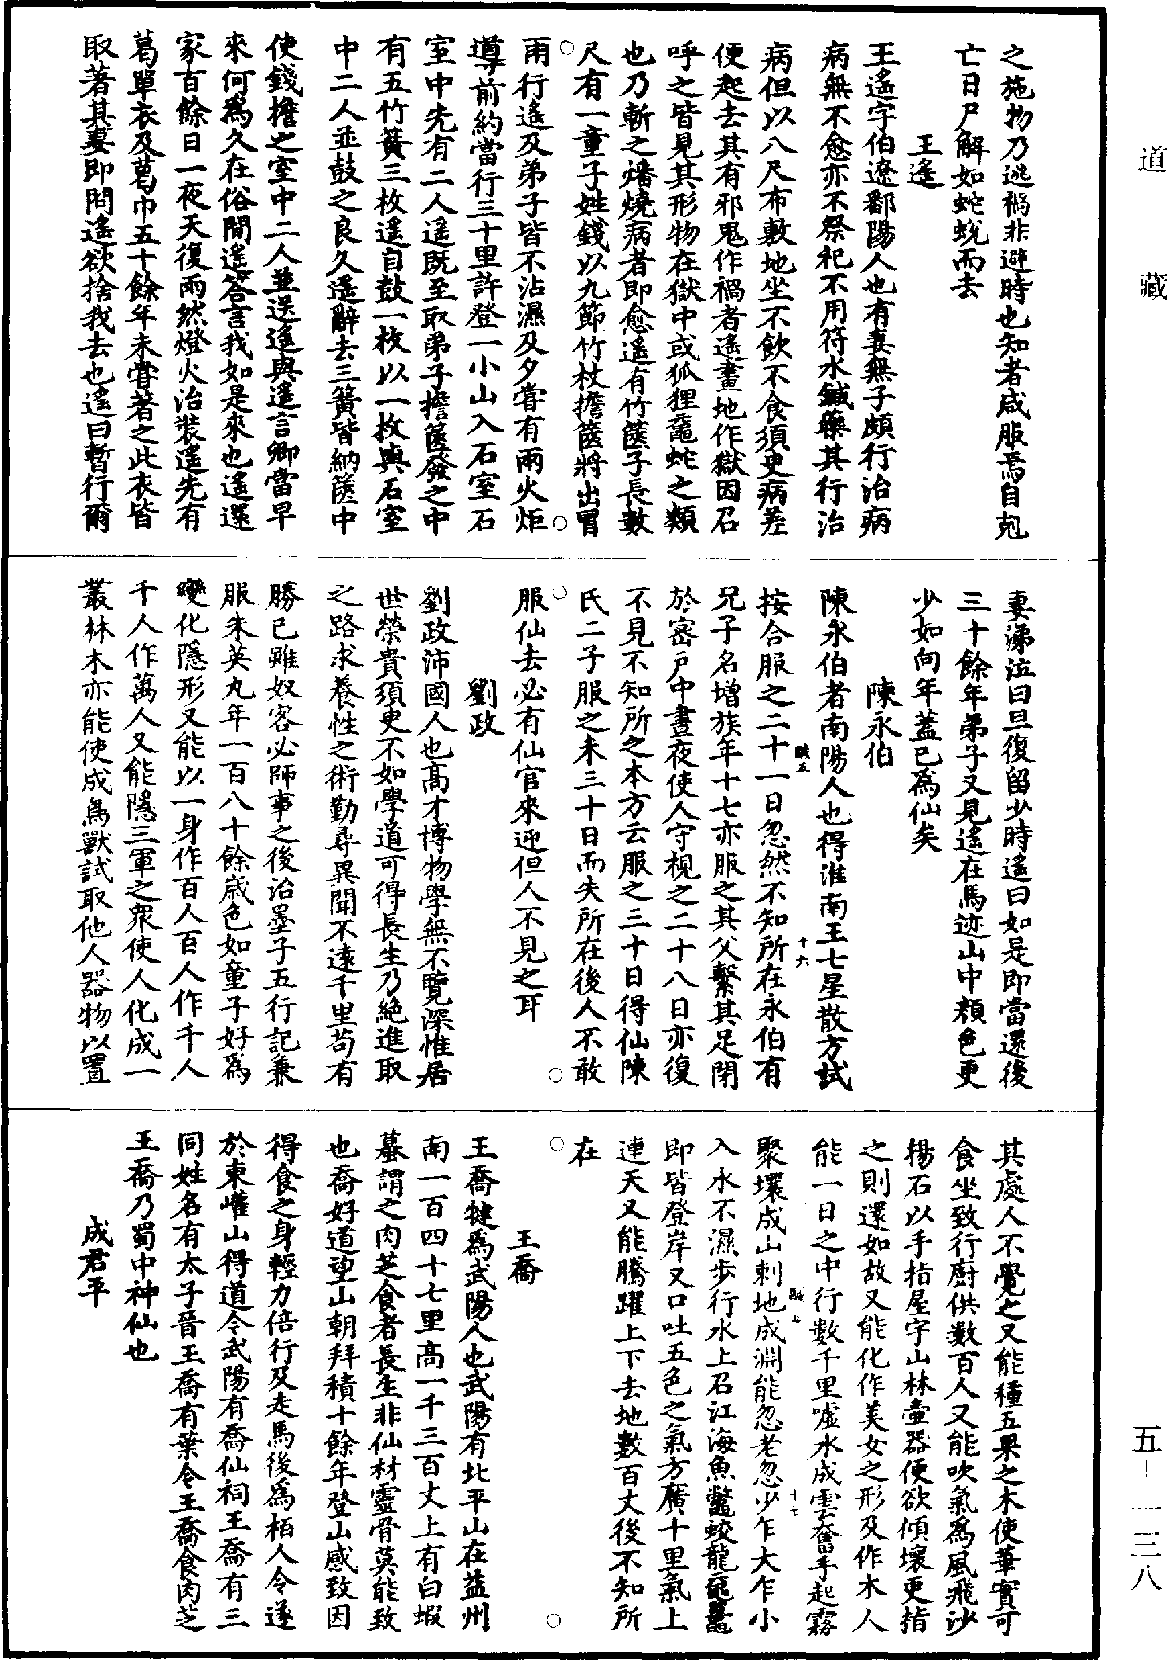 道藏
之施物乃逃禍非避時也知者咸服焉自剋
亡日尸解如蛇蛻而去
王遙
王遙字伯遼鄱陽人也有妻無子頗行治病
病無不愈亦不祭祀不用符水鍼藥其行治
病但以八尺布敷地坐不飲不食須臾病差
便起去其有邪鬼作禍者遙畫地作獄因召
呼之皆見其形物在獄中或狐狸鼉蛇之類
也乃斬之燔燒病者即愈遙有竹篋子長數
尺有一童子姓錢以九節竹杖擔篋將出冒
雨行遙及弟子皆不沾濕及夕嘗有兩火炬
導前約當行三十里許登一小山入石室石
室中先有二人遙既至取弟子擔篋發之中
有五竹簧三枚遙自鼓一枚以一枚與石室
中二人並鼓之良久遙辭去三簧皆納篋中
使錢擔之室中二人並送遙與遙言卿當早
來何為久在俗間遙答言我如是來也遙還
家百餘日一夜天復雨然燈火治裝遙先有
葛單衣及葛巾五十餘年未嘗著之此衣皆
取著其妻即問遙欲捨我去也遙曰暫行爾
妻涕泣曰且復留少時遙曰如是即當還後
三十餘年弟子又見遙在馬迹山中顏色更
少如向年蓋已為仙矣
陳永伯
陳永伯者南陽人也得淮南王七星散方試
按合服之二十一日忽然不知所在永伯有
兄子名增族年十七亦服之其父繫其足閉
於密戶中晝夜使人守視之二十八日亦復
不見不知所之本方云服之三十日得仙陳
氏二子服之未三十日而失所在後人不敢
服仙去必有仙官來迎但人不見之耳
劉政
劉政沛國人也高才博物學無不覽深惟居
世榮貴須臾不如學道可得長生乃絕進取
之路求養性之術勤尋異聞不遠千里苟有
勝己雖奴客必師事之後治墨子五行記兼
服朱英丸年一百八十餘歲色如童子好為
變化隱形又能以一身作百人百人作千人
千人作萬人又能隱三軍之眾使人化成一
叢林木亦能使成鳥獸試取他人器物以置
其處人不覺之又能種五果之木使華實可
食坐致行廚供數百人又能吹氣為風飛沙
揚石以手指屋宇山林壺器便欲傾壞更指
之則還如故又能化作美女之形及作木人
能一日之中行數千里噓水成雲奮手起霧
聚壤成山刺地成淵能忽老忽少乍大乍小
入水不濕步行水上召江海魚鱉蛟龍黿鼉
即皆登岸又口吐五色之氣方廣十里氣上
連天又能騰躍上下去地數百丈後不知所
在
王喬
王喬犍為武陽人也武陽有北平山在益州
南一百四十七里高一千三百丈上有白蝦
蟇謂之肉芝食者長生非仙材靈骨莫能致
也喬好道望山朝拜積十餘年登山感致因
得食之身輕力倍行及走馬後為栢人令遂
於東㠠山得道今武陽有喬仙祠王喬有三
同姓名有太子晉王喬有葉令王喬食肉芝
王喬乃蜀中神仙也
成君平
五－一三八